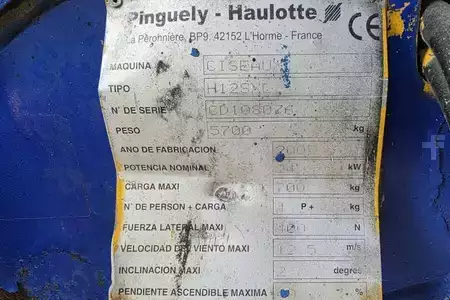 Pinguely - Haulotte
La Péronnière, BP9, 42152 L'Horme - France
MAQUINA CISEAU
TIPO
N° DE SERIE CD108026
PESO 5700 kg
ANO DE FABRICACION
POTENCIA NOMINAL kW
CARGA MAXI 700 kg
N° DE PERSON + CARGA P + kg
FUERZA LATERAL MAXI 400 N
VELOCIDAD DEL VIENTO MAXI 12.5 m/s
INCLINACION MAXI 2 degres
PENDIENTE ASCENDIBLE MAXIMA %